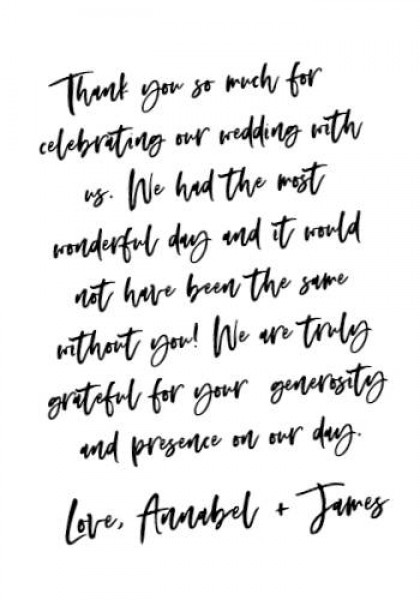 Thank you so much for
celebrating our wedding with
us. We had the most
wonderful day and it would
not have been the same
without you! We are truly
grateful for your generosity
and presence on our day.
Love, Annabel + James